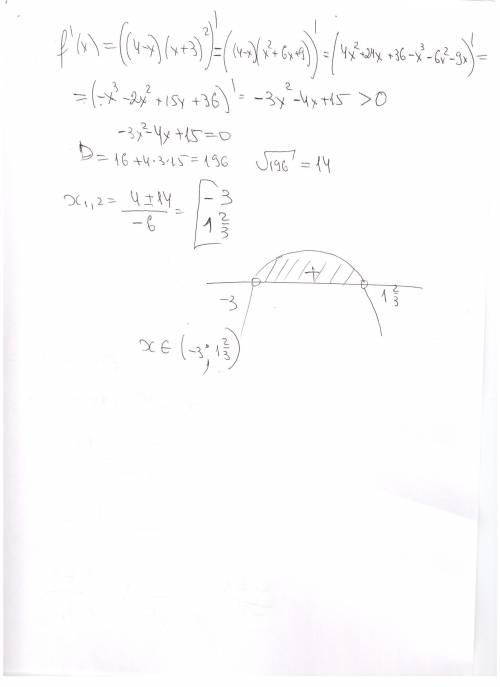 f'(x) = ((4-x)(x+3)²)' = ((4-x)(x²+6x+9))' = (4x²+24x+36-x³-6x²-9x)' =
= (-x³-2x²+15x+36)' = -3x²-4x+15 > 0
-3x²-4x+15=0
D = 16+4·3·15 = 196 √196 = 14
x₁,₂ = (4±14)/(-6) = [ -3
1 2/3
+
-3 1 2/3
x ∈ (-3; 1 2/3)